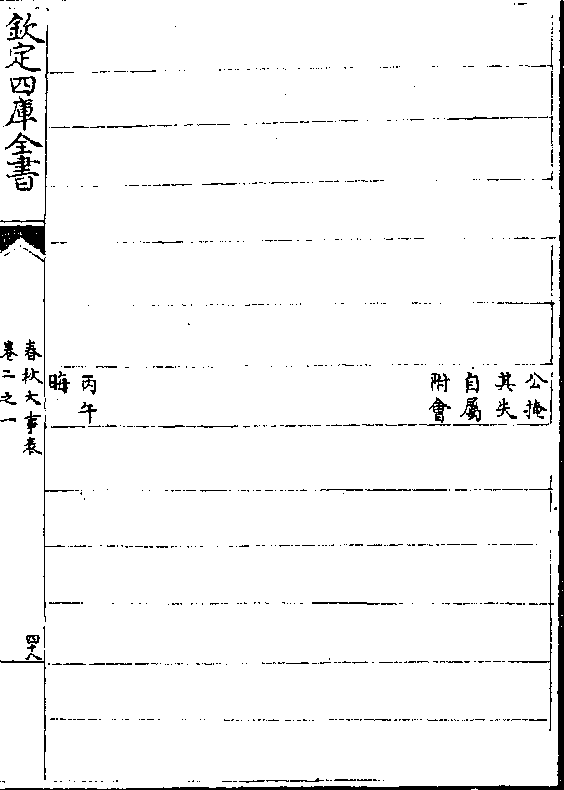 公掩
其失
自屬
附會
丙午
晦
欽定四庫全書
春秋大事表
卷二之一
四十八